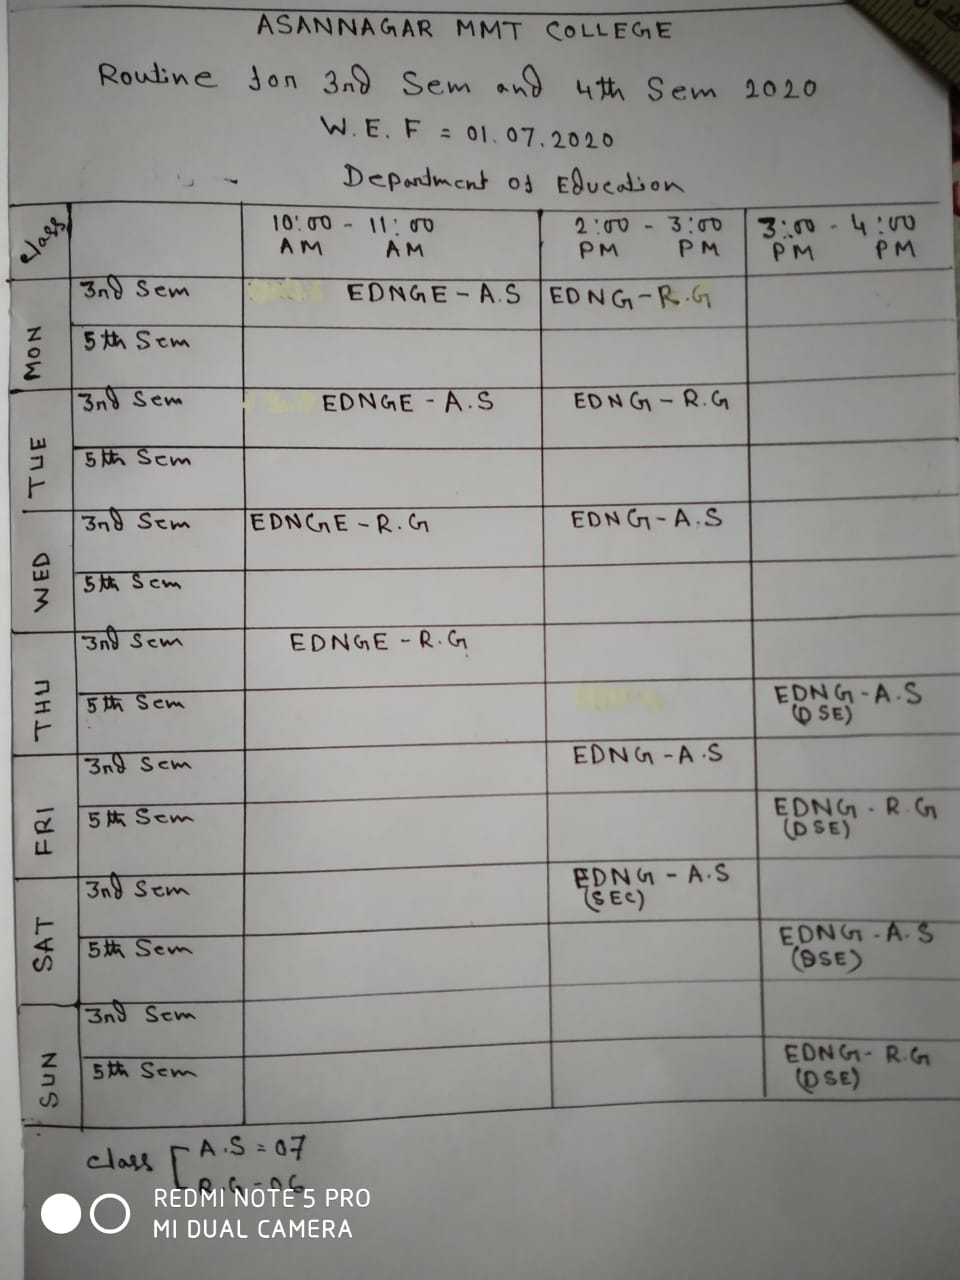 ASANNAGAR MMT COLLEGE
Routine for 3rd Sem and 4th Sem 2020
W.E.F = 01.07.2020
Department of Education
Class 10:00 - 11:00 AM AM 2:00 - 3:00 PM PM 3:00 - 4:00 PM PM
MON
3rd Sem EDNGE - A.S EDNG - R.G
5th Sem
TUE
3rd Sem EDNGE - A.S EDNG - R.G
5th Sem
WED
3rd Sem EDNGE - R.G EDNG - A.S
5th Sem
THU
3rd Sem EDNGE - R.G
5th Sem EDNG - A.S
(DSE)
FRI
3rd Sem EDNG - A.S
5th Sem EDNG - R.G
(DSE)
SAT
3rd Sem EDNG - A.S
(SEC)
5th Sem EDNG - A.S
(DSE)
SUN
3rd Sem
5th Sem EDNG - R.G
(DSE)
class [ A.S = 07
R.G = 06
REDMI NOTE 5 PRO
MI DUAL CAMERA